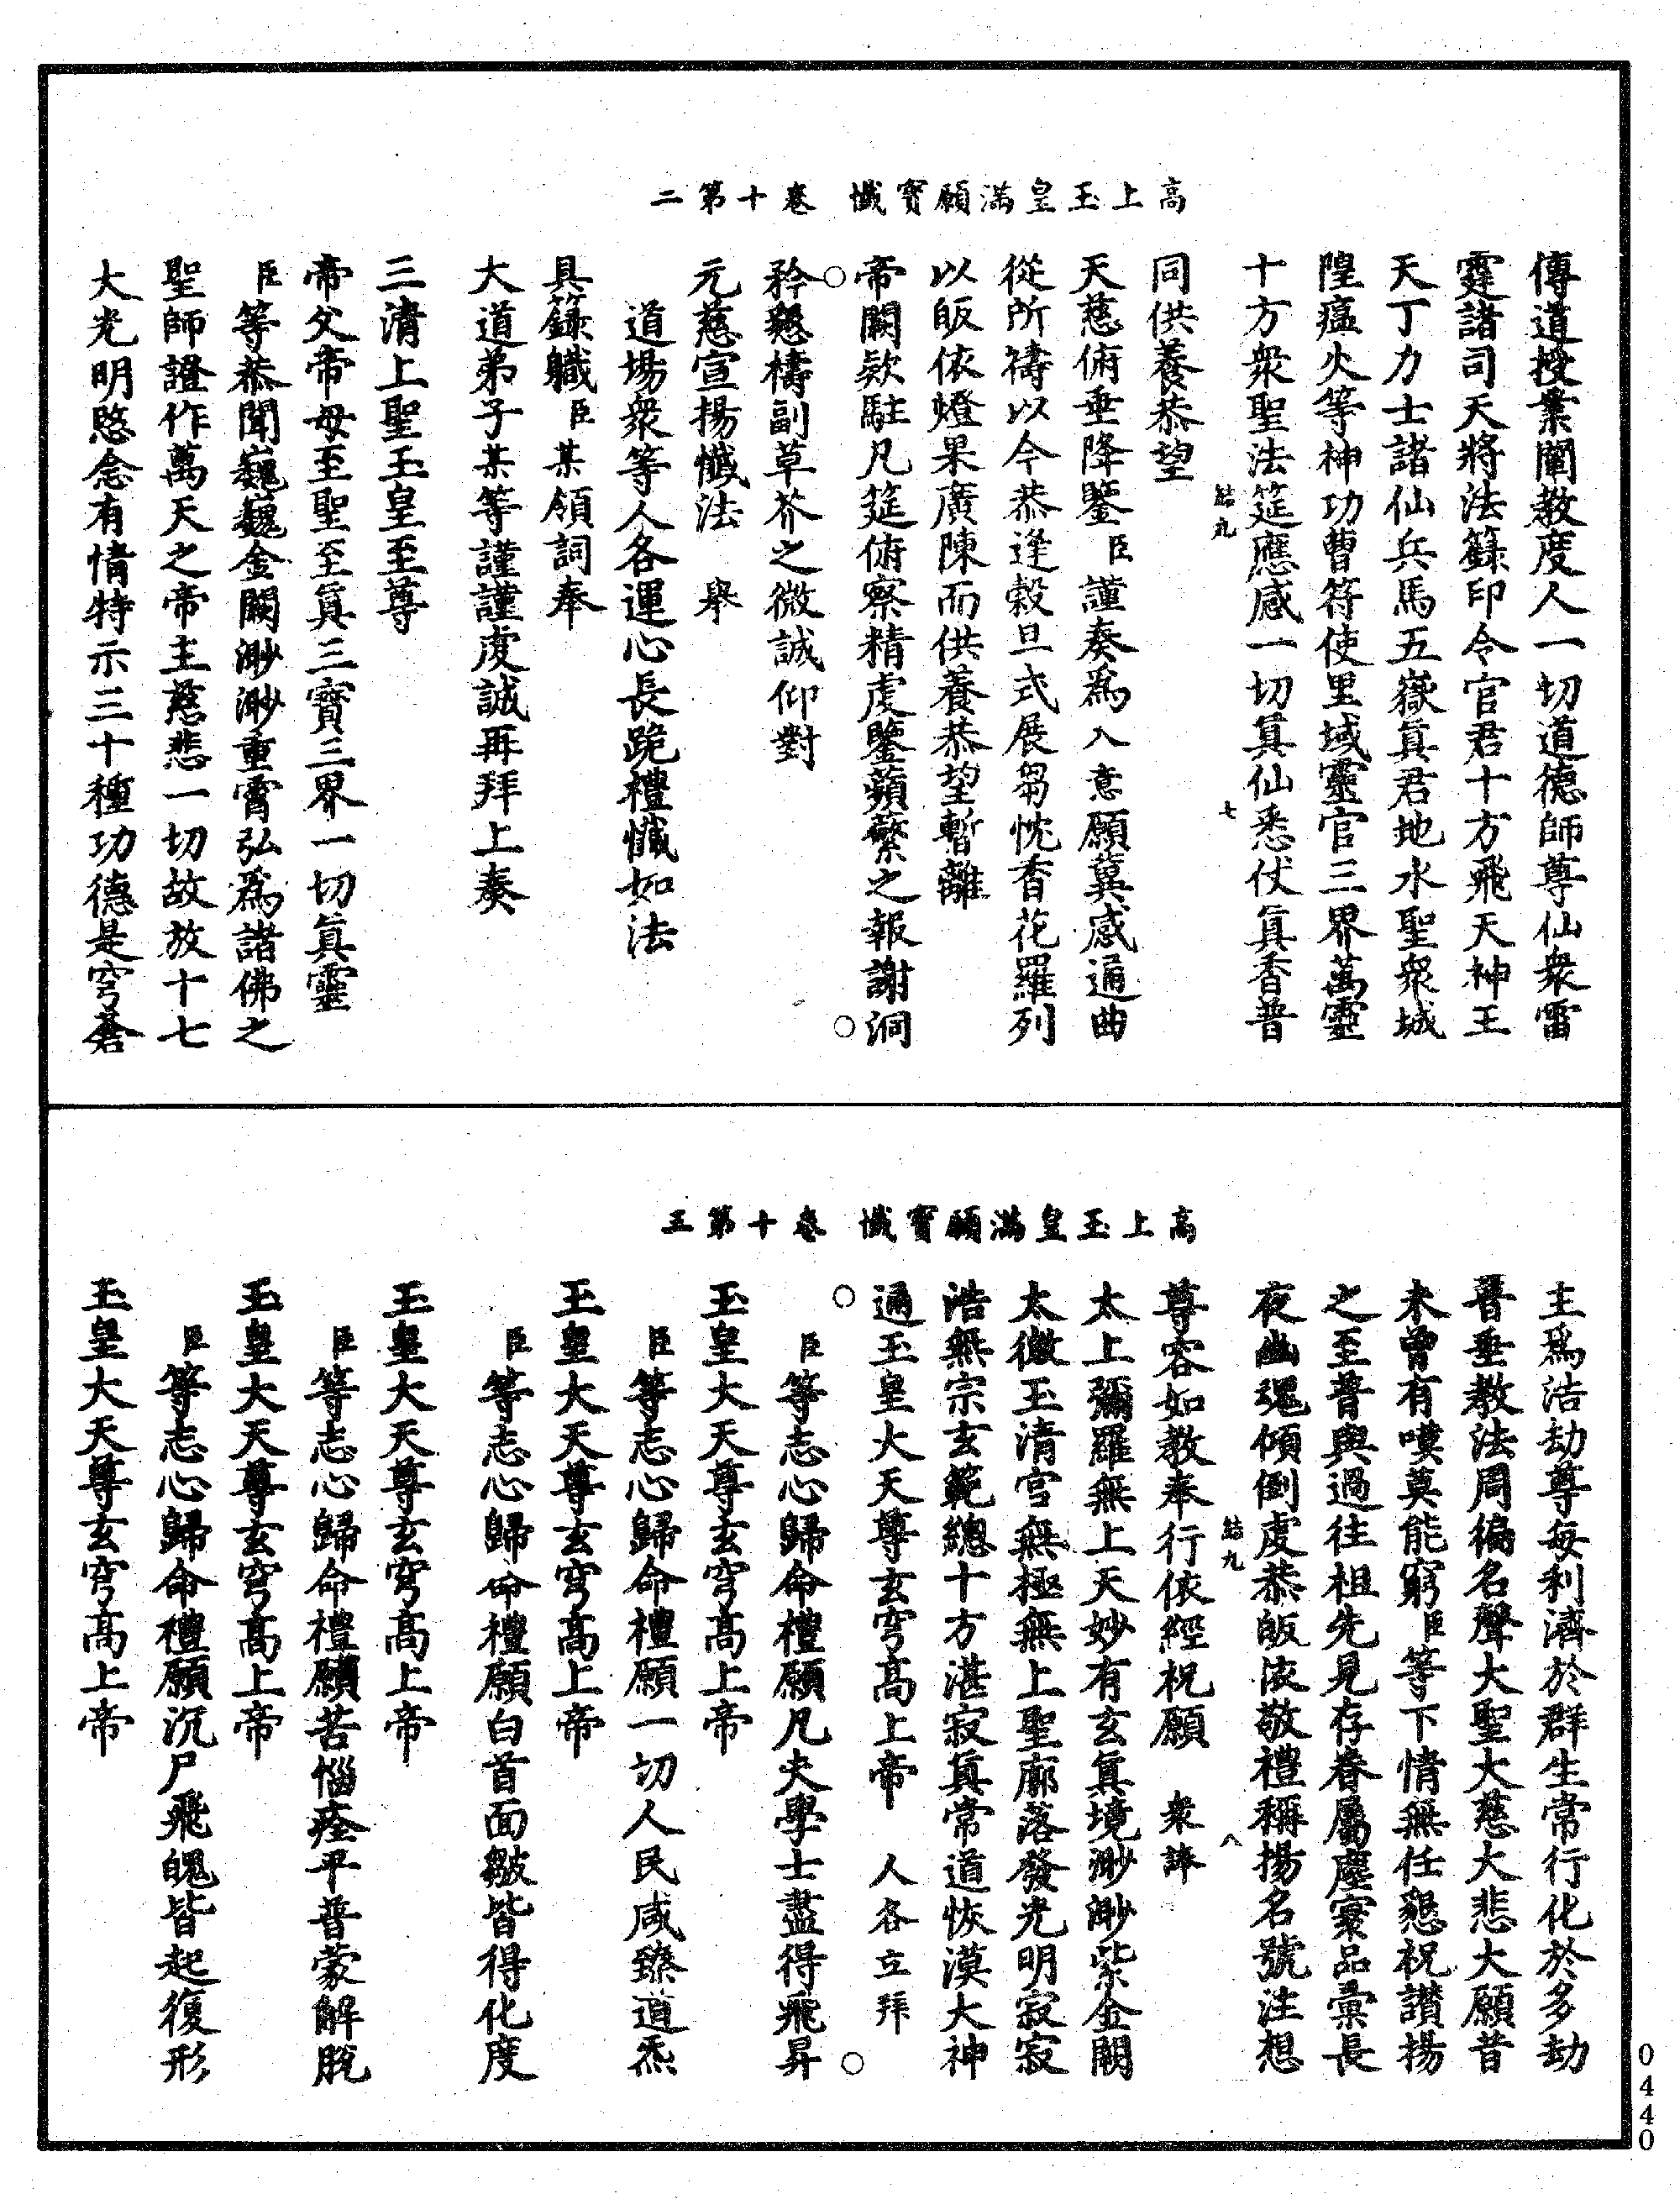 高上玉皇滿願寶懺　卷十第二
傳道授業闡教度人一切道德師尊仙衆雷
霆諸司天將法籙印令官君十方飛天神王
天丁力士諸仙兵馬五嶽真君地水聖衆城
隍瘟火等神功曹符使里域靈官三界萬靈
十方衆聖法筵應感一切真仙悉仗真香普
結九　七
同供養恭望
天慈俯垂降鑒臣謹奏爲入意願冀感通曲
從所禱以今恭逢穀旦式展芻忱香花羅列
以皈依燈果廣陳而供養恭望暫離
帝闕欵駐凡筵俯察精虔鑒蘋蘩之報謝洞
矜懇禱副草芥之微誠仰對
元慈宣揚懺法　舉
道場衆等人各運心長跪禮懺如法
具籙職臣某領詞奉
大道弟子某等謹謹虔誠再拜上奏
三清上聖玉皇至尊
帝父帝母至聖至真三寶三界一切真靈
臣等恭聞巍巍金闕渺渺重霄弘爲諸佛之
聖師證作萬天之帝主慈悲一切故放十七
大光明愍念有情特示三十種功德是穹蒼
高上玉皇滿願寶懺　卷十第三
主爲浩劫尊每利濟於群生常行化於多劫
普垂教法周徧名聲大聖大慈大悲大願昔
未曾有嘆莫能窮臣等下情無任懇祝讚揚
之至普與過往祖先見存眷屬塵寰品彙長
夜幽魂傾倒虔恭皈依敬禮稱揚名號注想
結九　八
尊容如教奉行依經祝願　衆諱
太上彌羅無上天妙有玄真境渺渺紫金闕
太微玉清宮無極無上聖廓落發光明寂寂
浩無宗玄範總十方湛寂真常道恢漠大神
通玉皇大天尊玄穹高上帝　人各立拜
臣等志心歸命禮願凡夫學士盡得飛昇
玉皇大天尊玄穹高上帝
臣等志心歸命禮願一切人民咸臻道炁
玉皇大天尊玄穹高上帝
臣等志心歸命禮願白首面皺皆得化度
玉皇大天尊玄穹高上帝
臣等志心歸命禮願苦惱痊平普蒙解脫
玉皇大天尊玄穹高上帝
臣等志心歸命禮願沉尸飛魄皆起復形
玉皇大天尊玄穹高上帝
0440